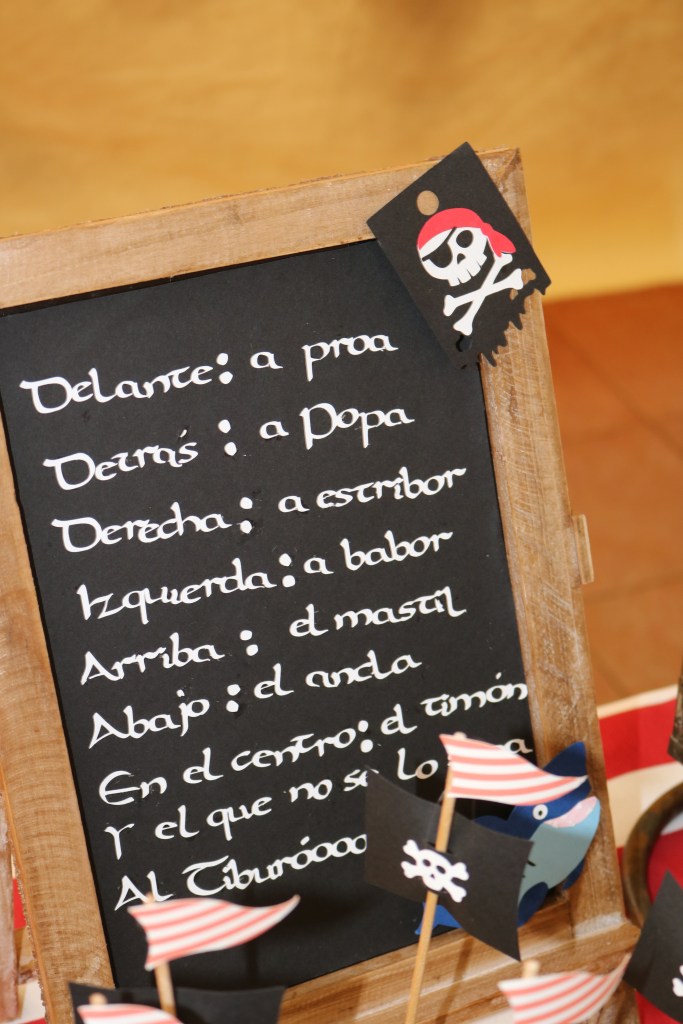 Delante: a proa
Detrás: a Popa
Derecha: a estribor
Izquierda: a babor
Arriba: el mastil
Abajo: el ancla
En el centro: el timón
Y el que no se lo
Al Tiburóooo